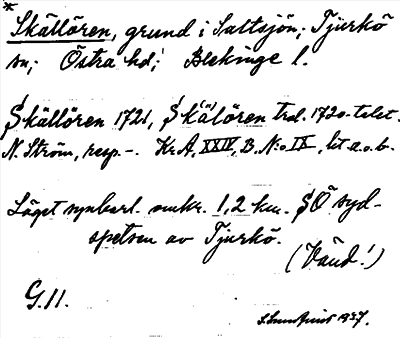 * Skällören, grund i Saltsjön; Tjurkö
sn; Östra hd; Blekinge l.
Skällören 1721, Skä(l)lören trol. 1720-talet.
N. Ström, resp. -. Kr.A. XXIV, B. N:o IX, lit a.o.b.
Läget synbarl. omkr. 1,2 km. SÖ syd-
spetsen av Tjurkö.
(Vänd!)
G.11.
1937.